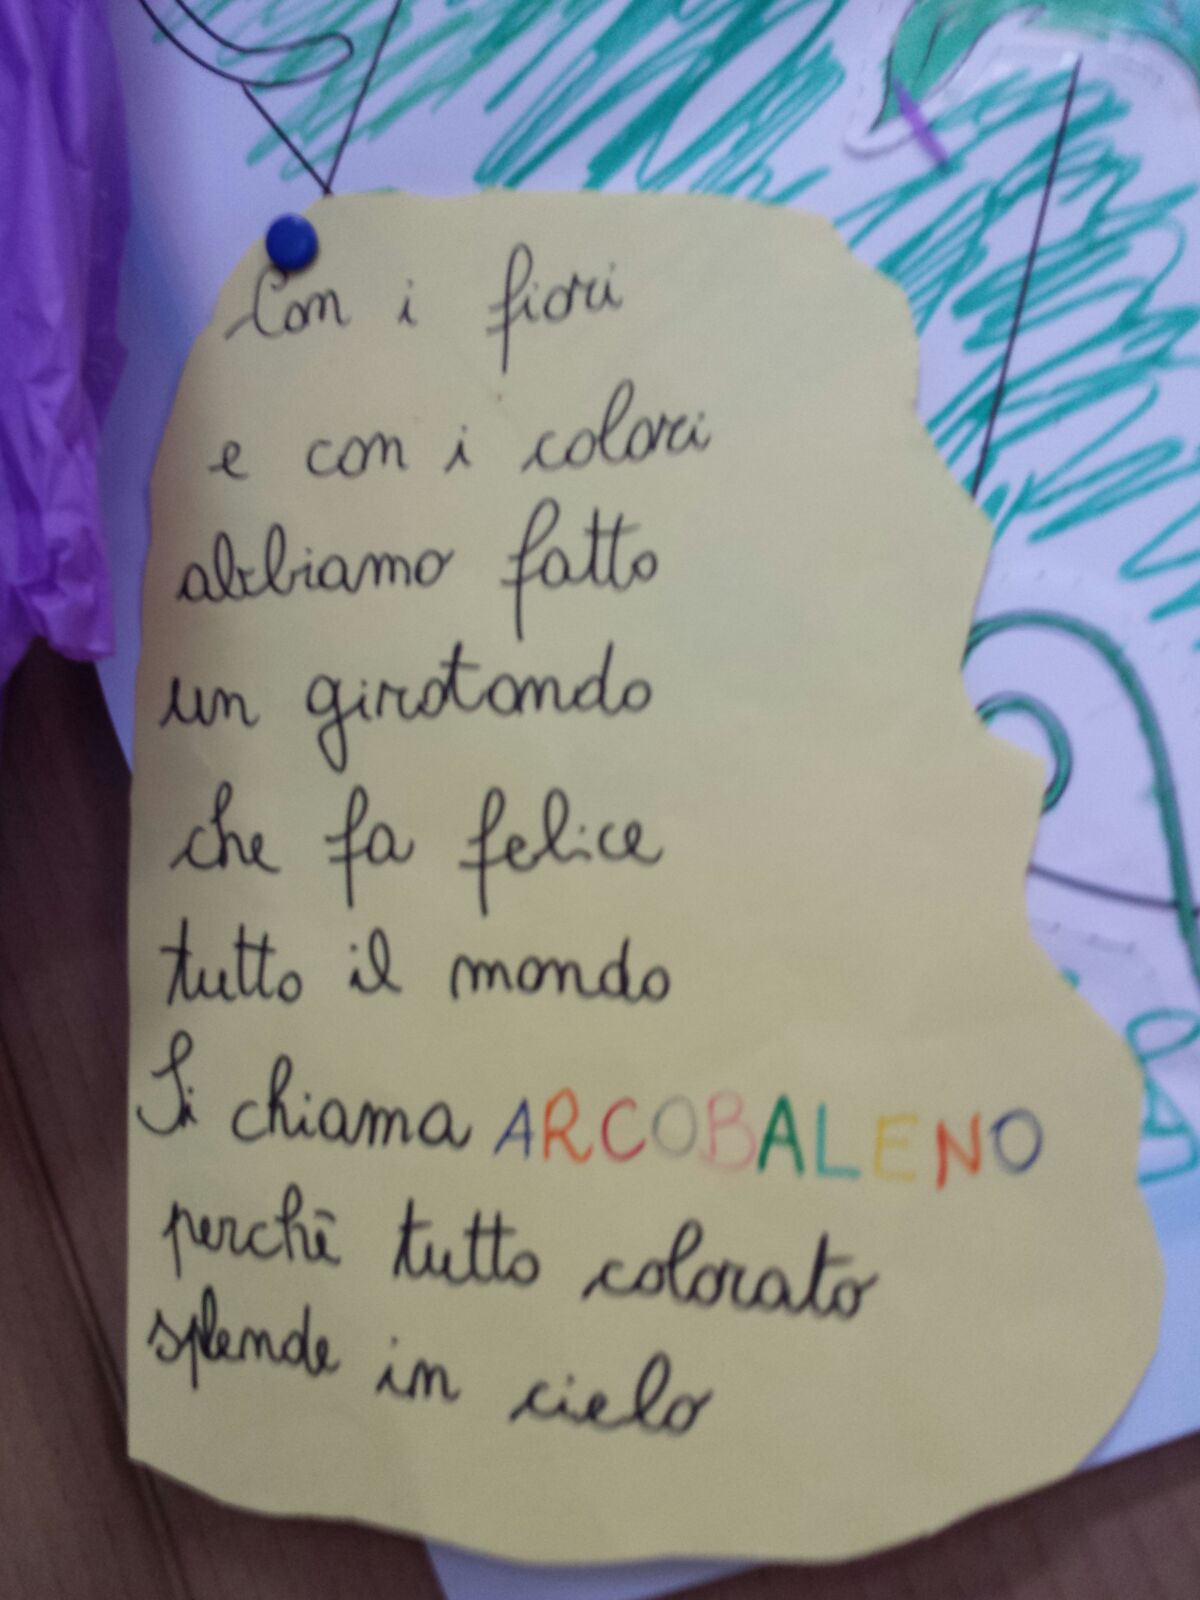 Con i fiori
e con i colori
abbiamo fatto
un girotondo
che fa felice
tutto il mondo
Si chiama ARCOBALENO
perchē tutto colorato
splende in cielo